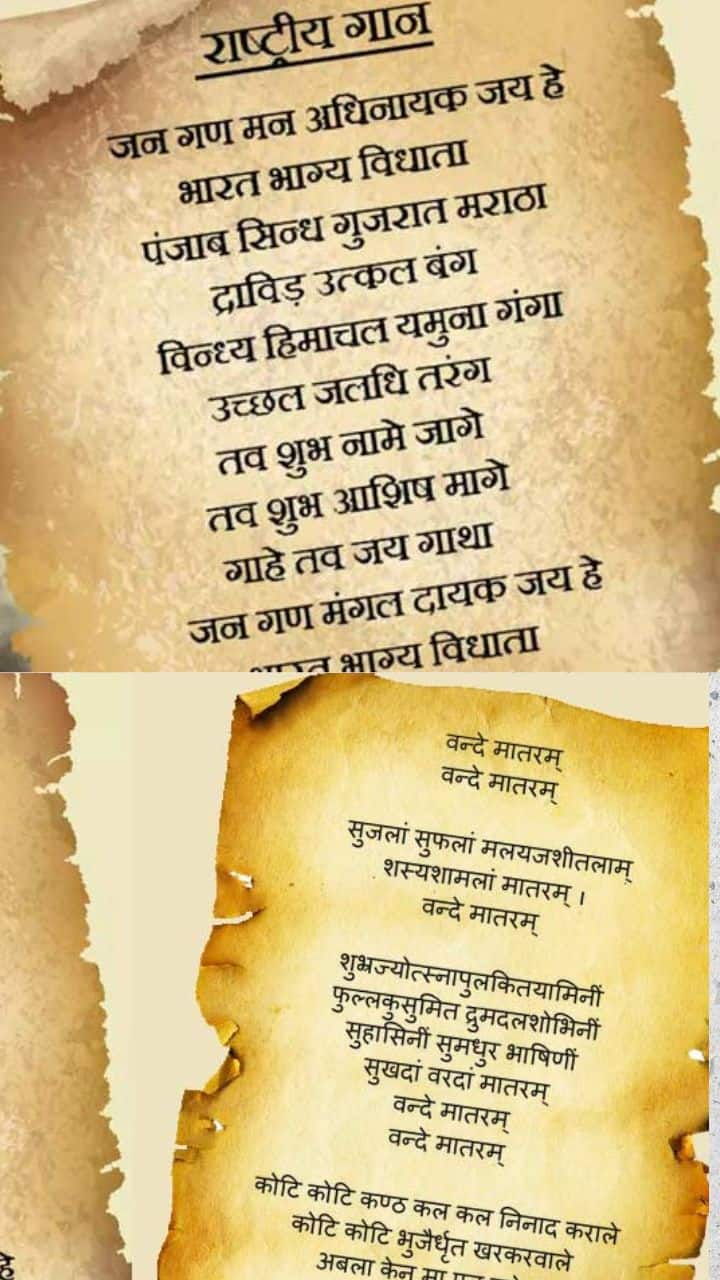 राष्ट्रीय गान
जन गण मन अधिनायक जय हे
भारत भाग्य विधाता
पंजाब सिन्ध गुजरात मराठा
द्राविड़ उत्कल बंग
विन्ध्य हिमाचल यमुना गंगा
उच्छल जलधि तरंग
तव शुभ नामे जागे
तव शुभ आशिष मागे
गाहे तव जय गाथा
जन गण मंगल दायक जय हे
भारत भाग्य विधाता
वन्दे मातरम्
वन्दे मातरम्
सुजलां सुफलां मलयजशीतलाम्
शस्यशामलां मातरम् ।
वन्दे मातरम्
शुभ्रज्योत्स्नापुलकितयामिनीं
फुल्लकुसुमित द्रुमदलशोभिनीं
सुहासिनीं सुमधुर भाषिणीं
सुखदां वरदां मातरम्
वन्दे मातरम्
वन्दे मातरम्
कोटि कोटि कण्ठ कल कल निनाद कराले
कोटि कोटि भुजैर्धृत खरकरवाले
हे
अबला केन मा